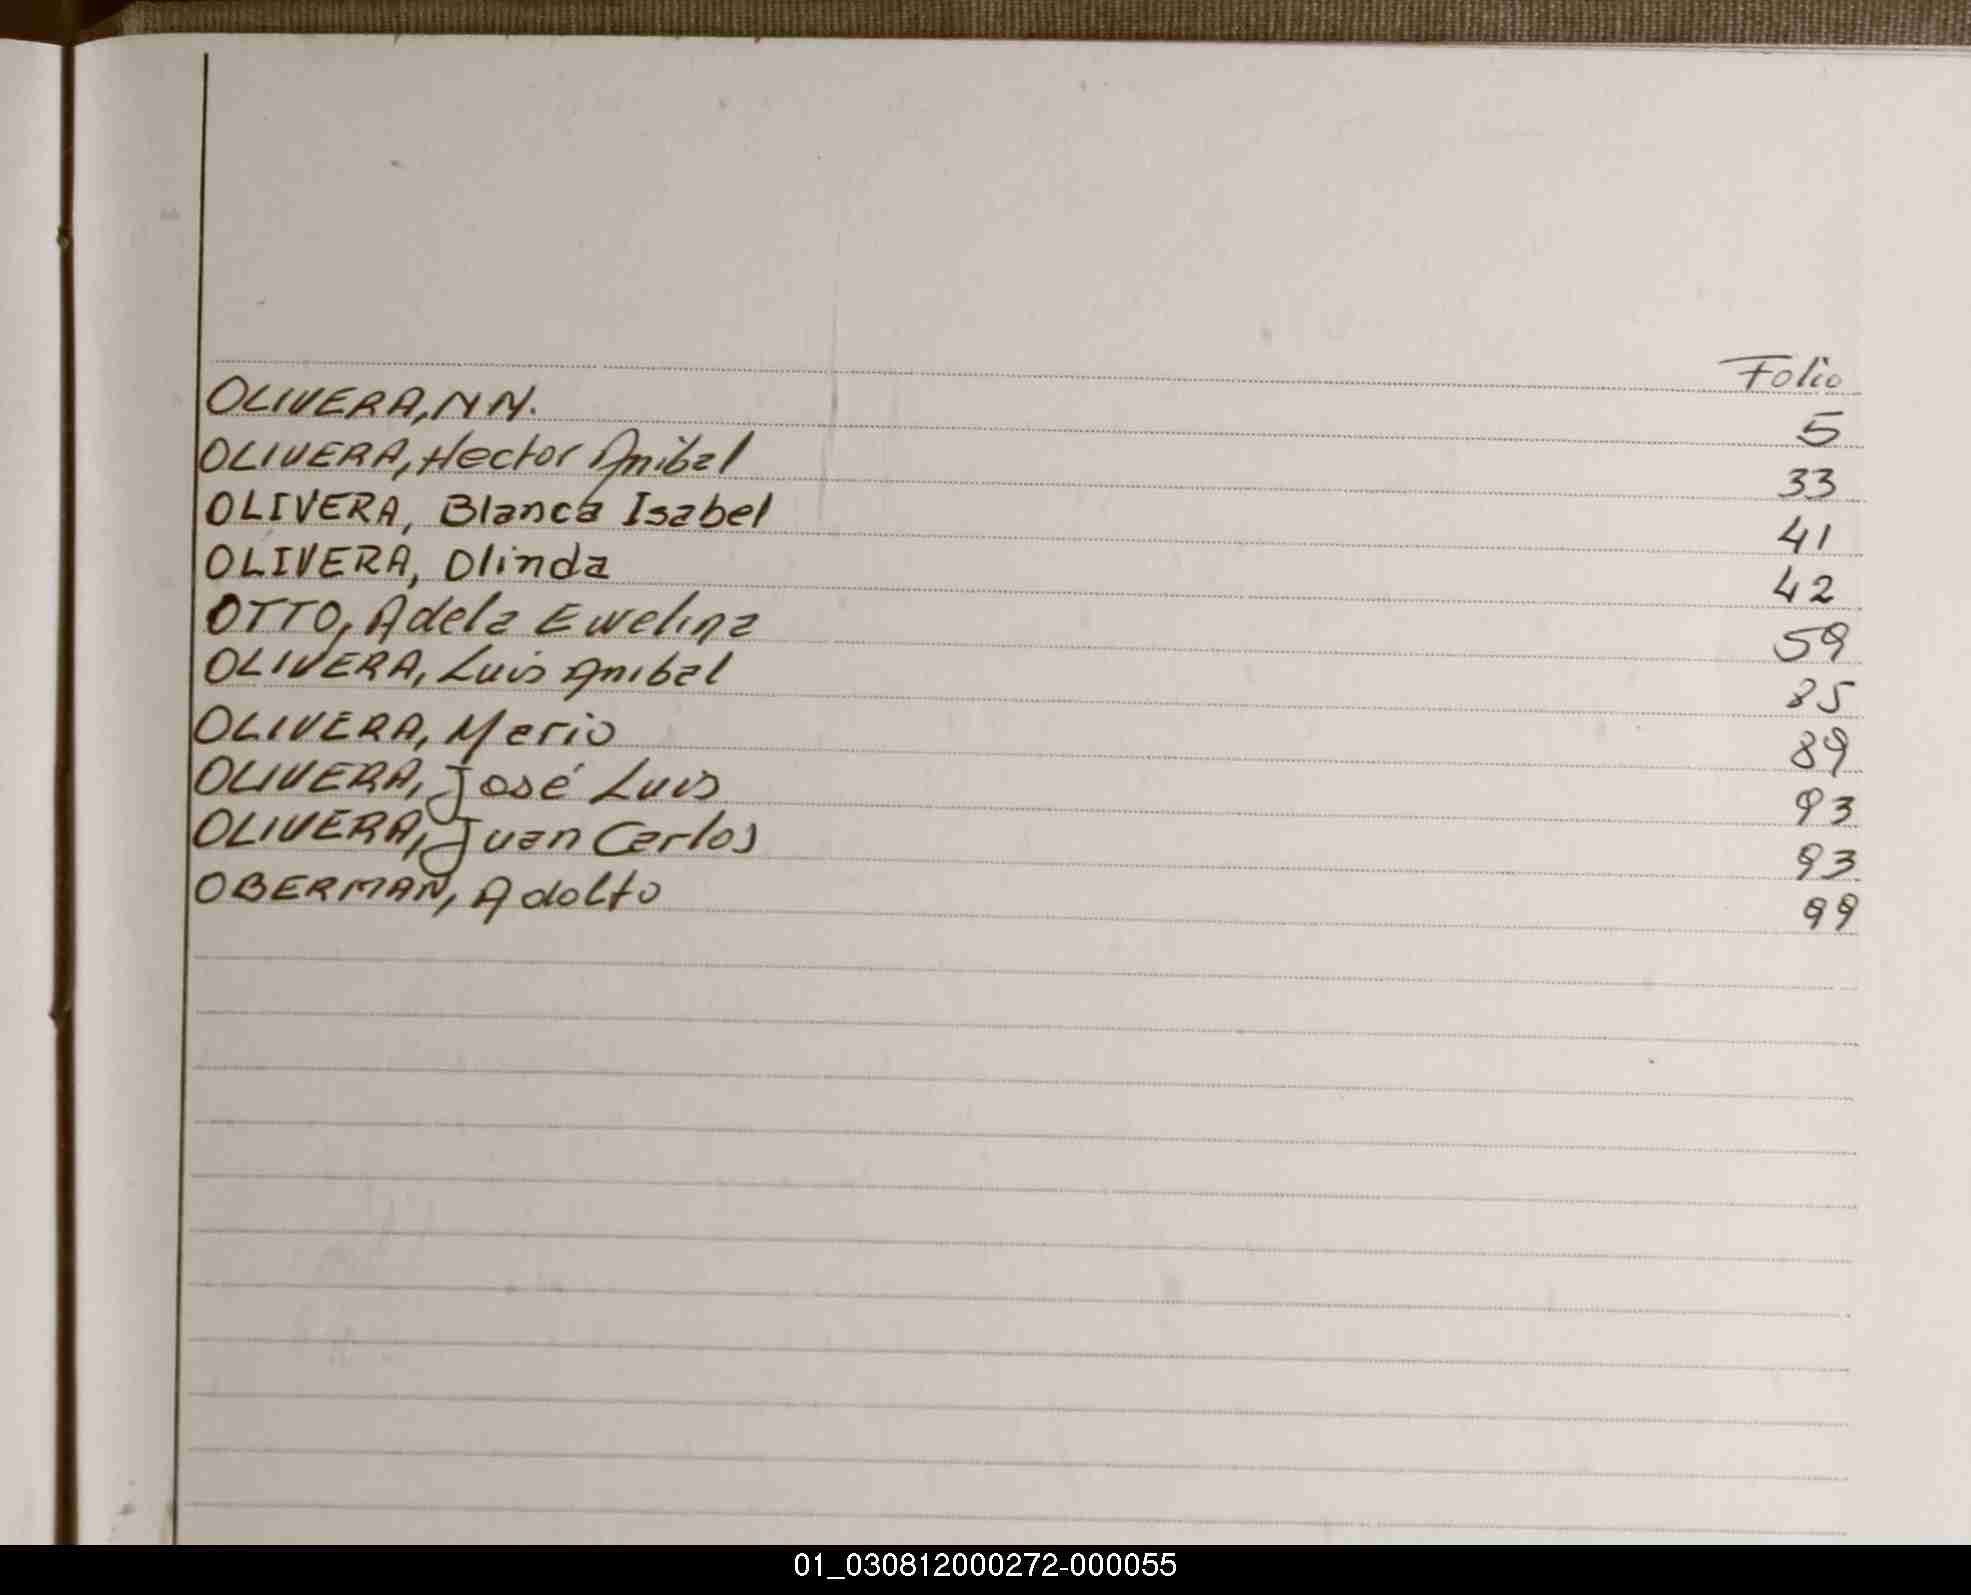 Folio
OLIVERA, NN. 5
OLIVERA, Hector Anibal 33
OLIVERA, Blanca Isabel 41
OLIVERA, Olinda 42
OTTO, Adela Ewelina 59
OLIVERA, Luis Anibal 85
OLIVERA, Mario 89
OLIVERA, José Luis 93
OLIVERA, Juan Carlos 93
OBERMAN, Adolfo 99
01_030812000272-000055